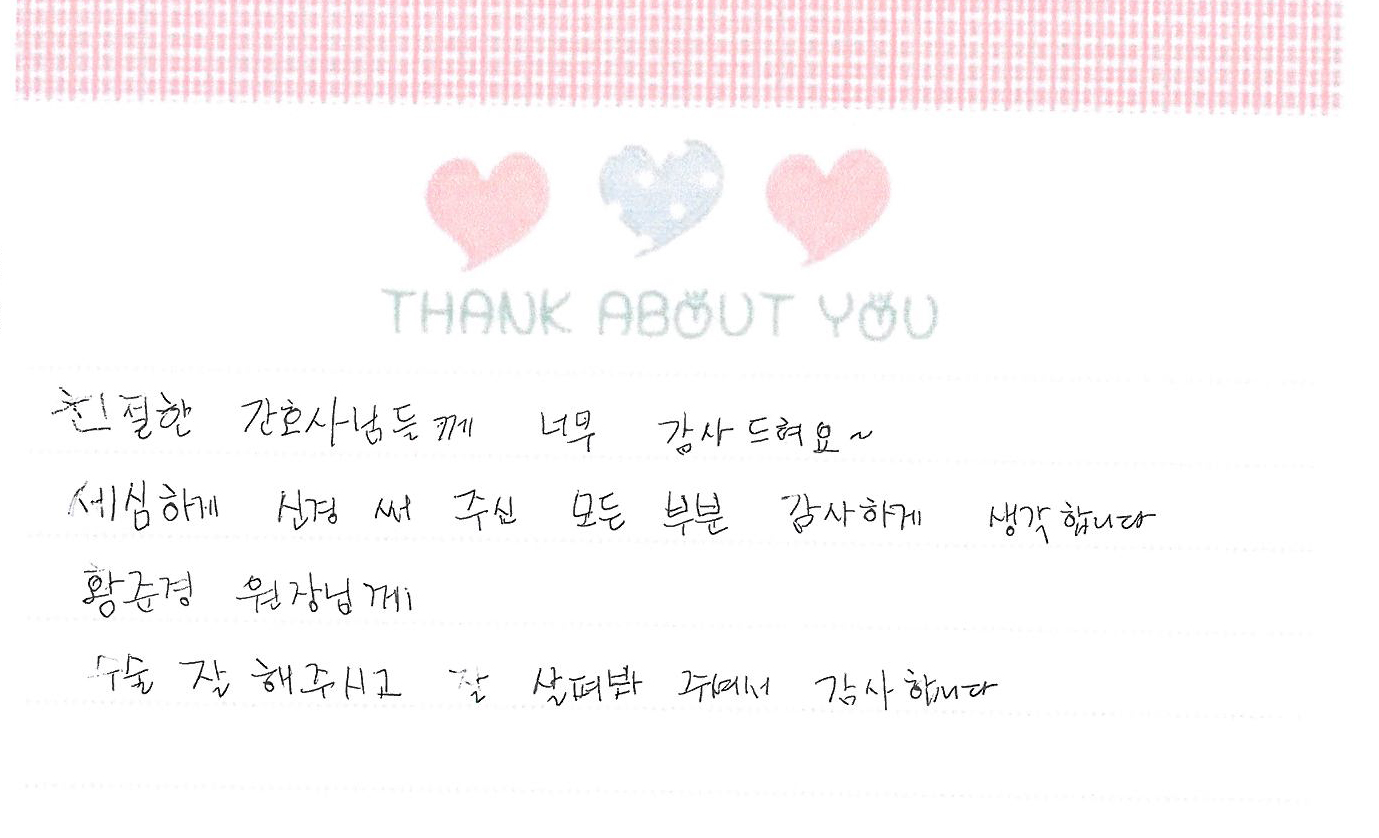 THANK ABOUT YOU
친절한 간호사님들께 너무 감사드려요~
세심하게 신경 써 주신 모든 부분 감사하게 생각합니다
황준경 원장님께
수술 잘 해주시고 잘 살펴봐 주셔서 감사합니다